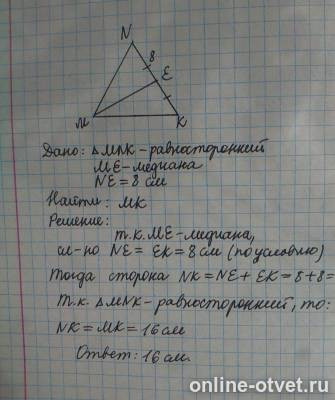 N
8
E
M
K
Дано: ΔMNK - равносторонний
ME - медиана
NE = 8 см
Найти: MK
Решение:
т.к. ME - медиана,
сл-но NE = EK = 8 см (по условию)
Тогда сторона NK = NE + EK = 8 + 8 =
Т.к. ΔMNK - равносторонний, то:
NK = MK = 16 см
Ответ: 16 см.
online-otvet.ru